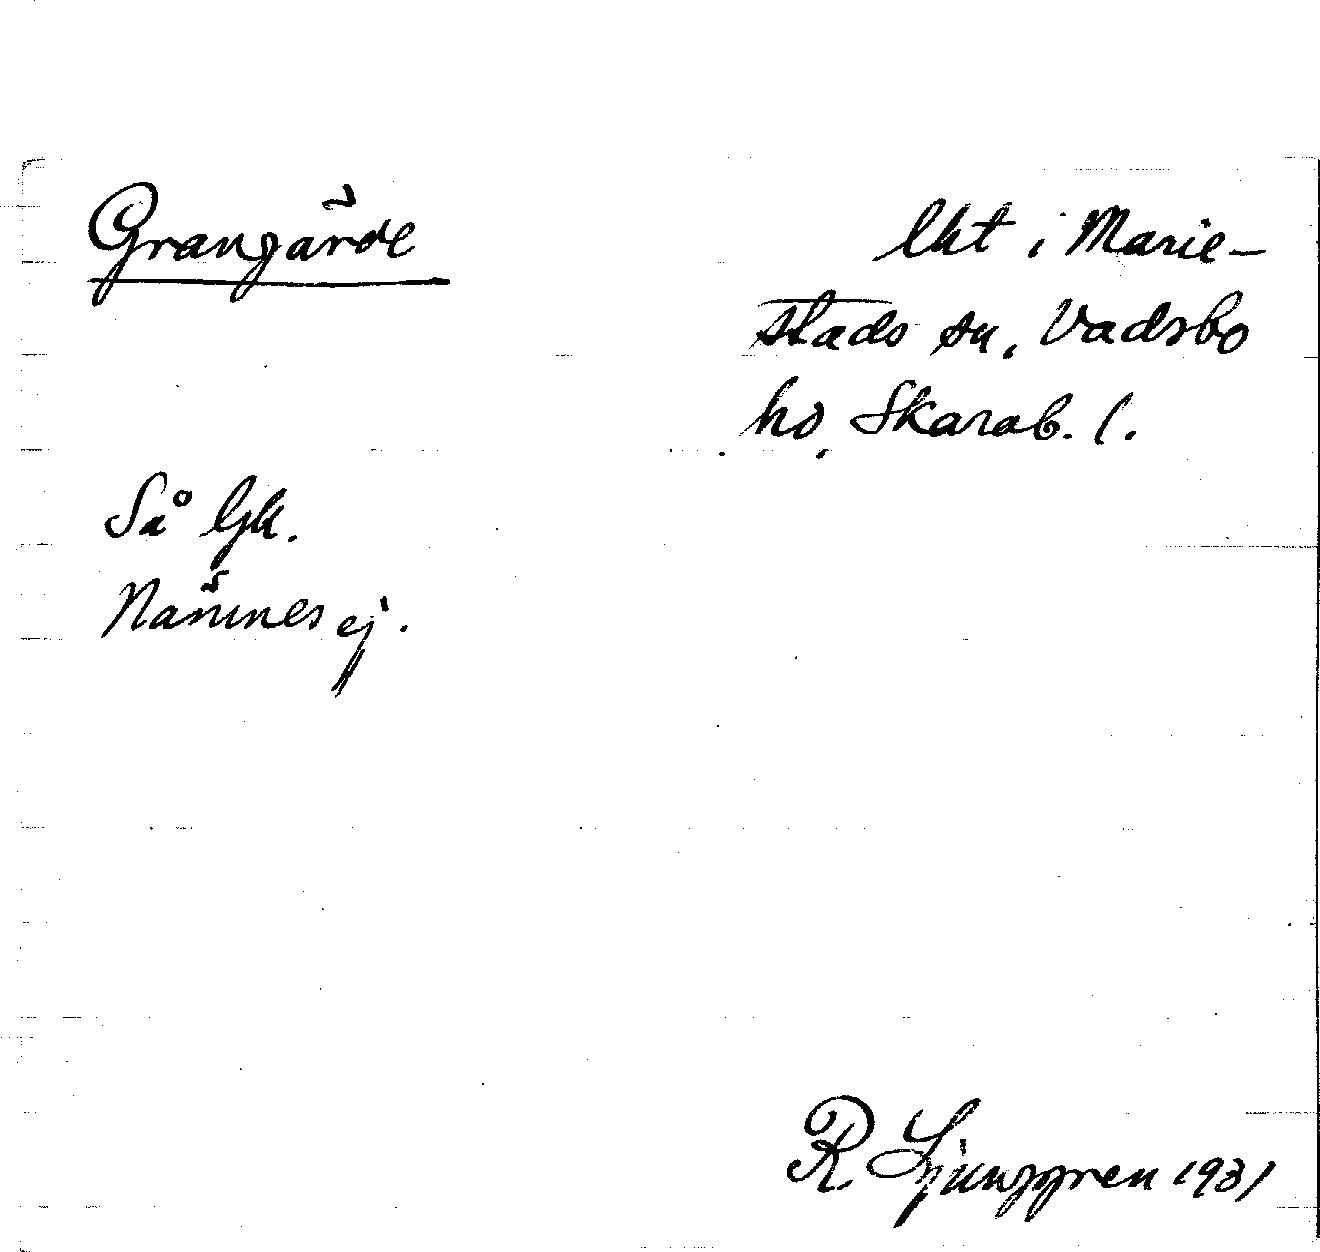 Grangärde
lht i Marie-
stads sn, Vadsbo
hd, Skarab. l.
Så Gk.
Nämnes ej.
R. Ljunggren 1931